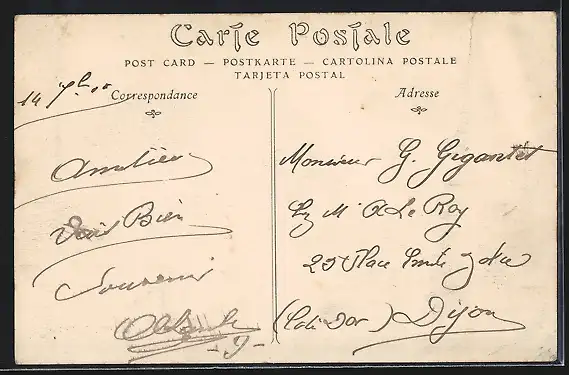 Carte Postale
POST CARD — POSTKARTE — CARTOLINA POSTALE
TARJETA POSTAL
14 7bre
Correspondance
Adresse
Amitiés
Bien
Souvenir
Monsieur G. Gigantet
M. A Le Roy
Place Emile Zola
(Côte d'Or) Dijon